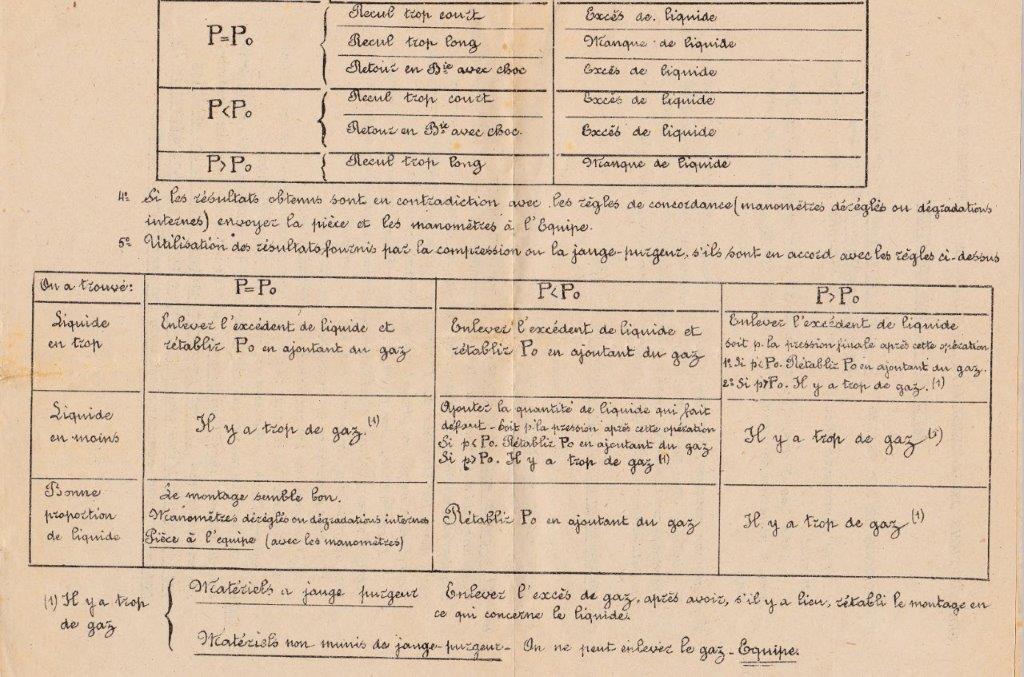 P=Po
Recul trop court
Excès de liquide
Recul trop long
Manque de liquide
Retour en Bie avec choc
Excès de liquide
P<Po
Recul trop court
Excès de liquide
Retour en Bie avec choc.
Excès de liquide
P>Po
Recul trop long
Manque de liquide
4º Si les résultats obtenus sont en contradiction avec les règles de concordance (manomètres déréglés ou dégradations
internes) envoyer la pièce et les manomètres à l'Equipe.
5º Utilisation des résultats fournis par la compression ou la jauge-purgeur, s'ils sont en accord avec les règles ci-dessus
On a trouvé:
P=Po
P<Po
P>Po
Liquide
en trop
Enlever l'excédent de liquide et
rétablir Po en ajoutant du gaz
Enlever l'excédent de liquide et
rétablir Po en ajoutant du gaz
Enlever l'excédent de liquide
soit p. la pression finale après cette opération
1º Si p<Po. Rétablir Po en ajoutant du gaz.
2º Si p>Po. Il y a trop de gaz. (1)
Liquide
en moins
Il y a trop de gaz. (1)
Ajouter la quantité de liquide qui fait
défaut - Soit p. la pression après cette opération
Si p<Po. Rétablir Po en ajoutant du gaz
Si p>Po. Il y a trop de gaz (1)
Il y a trop de gaz (1)
Bonne
proportion
de liquide
Le montage semble bon.
Manomètres déréglés ou dégradations internes
Pièce à l'equipe (avec les manomètres)
Rétablir Po en ajoutant du gaz
Il y a trop de gaz (1)
(1) Il y a trop
de gaz
Matériels a jauge purgeur Enlever l'excès de gaz, après avoir, s'il y a lieu, rétabli le montage en
ce qui concerne le liquide.
Matériels non munis de jauge-purgeur - On ne peut enlever le gaz - Equipe.